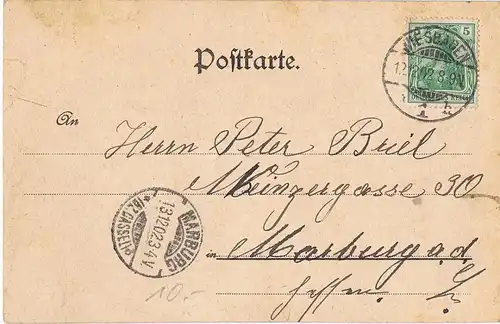 5
WIESBADEN
12. 02 8-9N.
1 h
Postkarte.
An
Herrn Peter Briel
Meinzergasse 30
in Marburg a.d.
MARBURG
13.12.02.3-4V
(BZ.CASSEL)
10.-